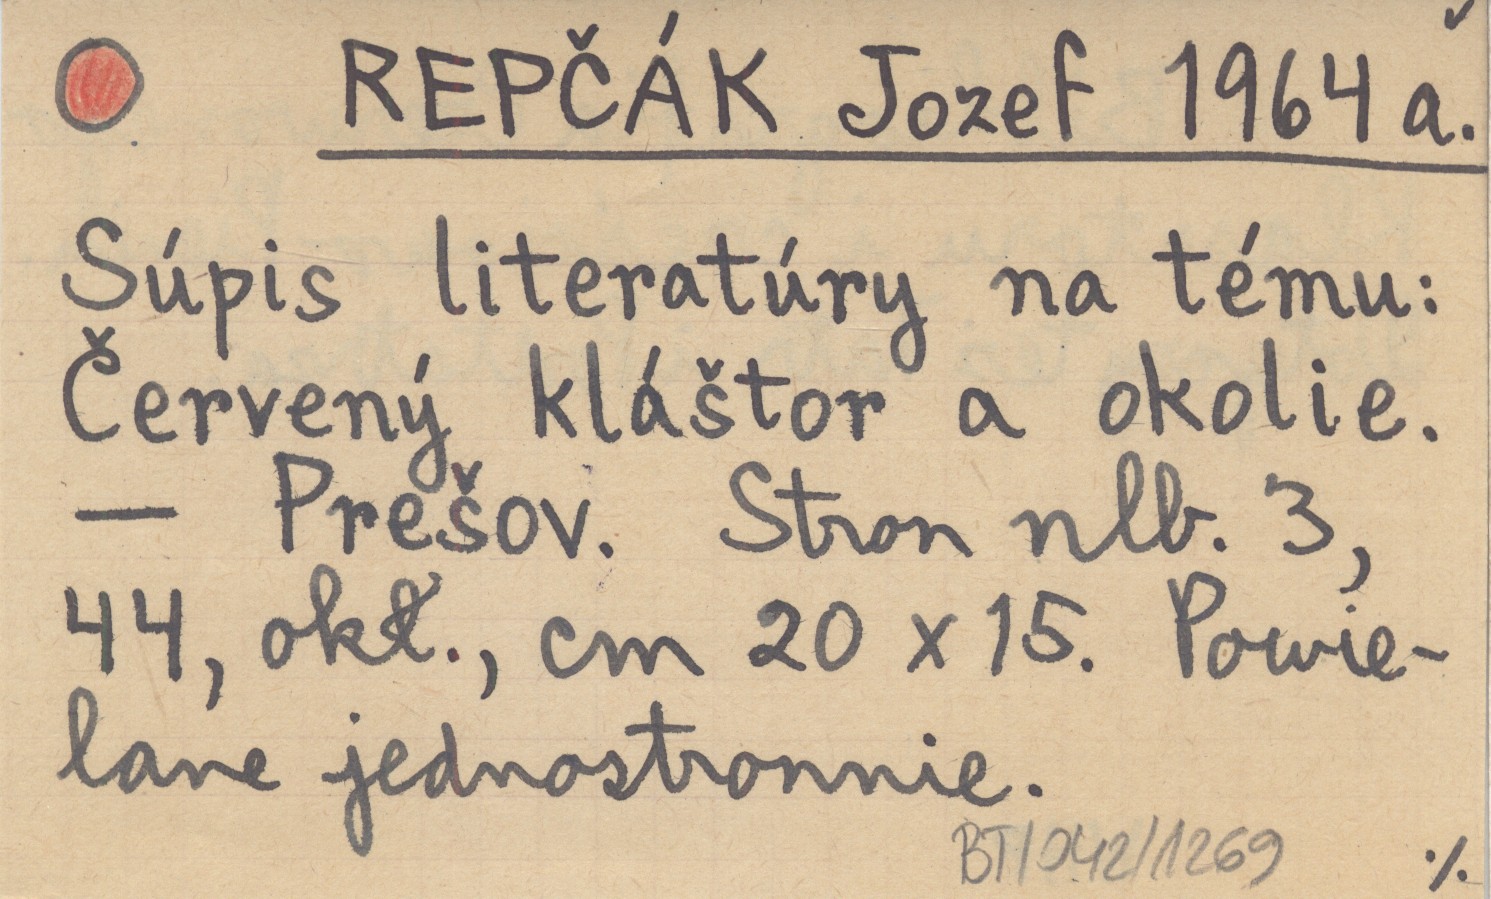 REPČÁK Jozef 1964 a.
Súpis literatúry na tému:
Červený kláštor a okolie.
— Prešov. Stron nlb. 3,
44, okł., cm 20 x 15. Powie-
lane jednostronnie.
BT/042/1269
./.